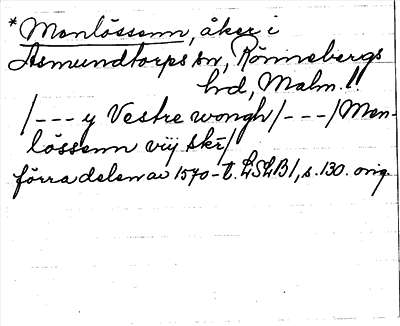 *Monlössenn, åker i
Asmundtorps sn, Rönnebergs
hd, Malm. ll
/--- y Vestre wongh/---/Mon-
lössenn viij skr/
förra delen av 1570-t. LSLB1, s. 130. orig